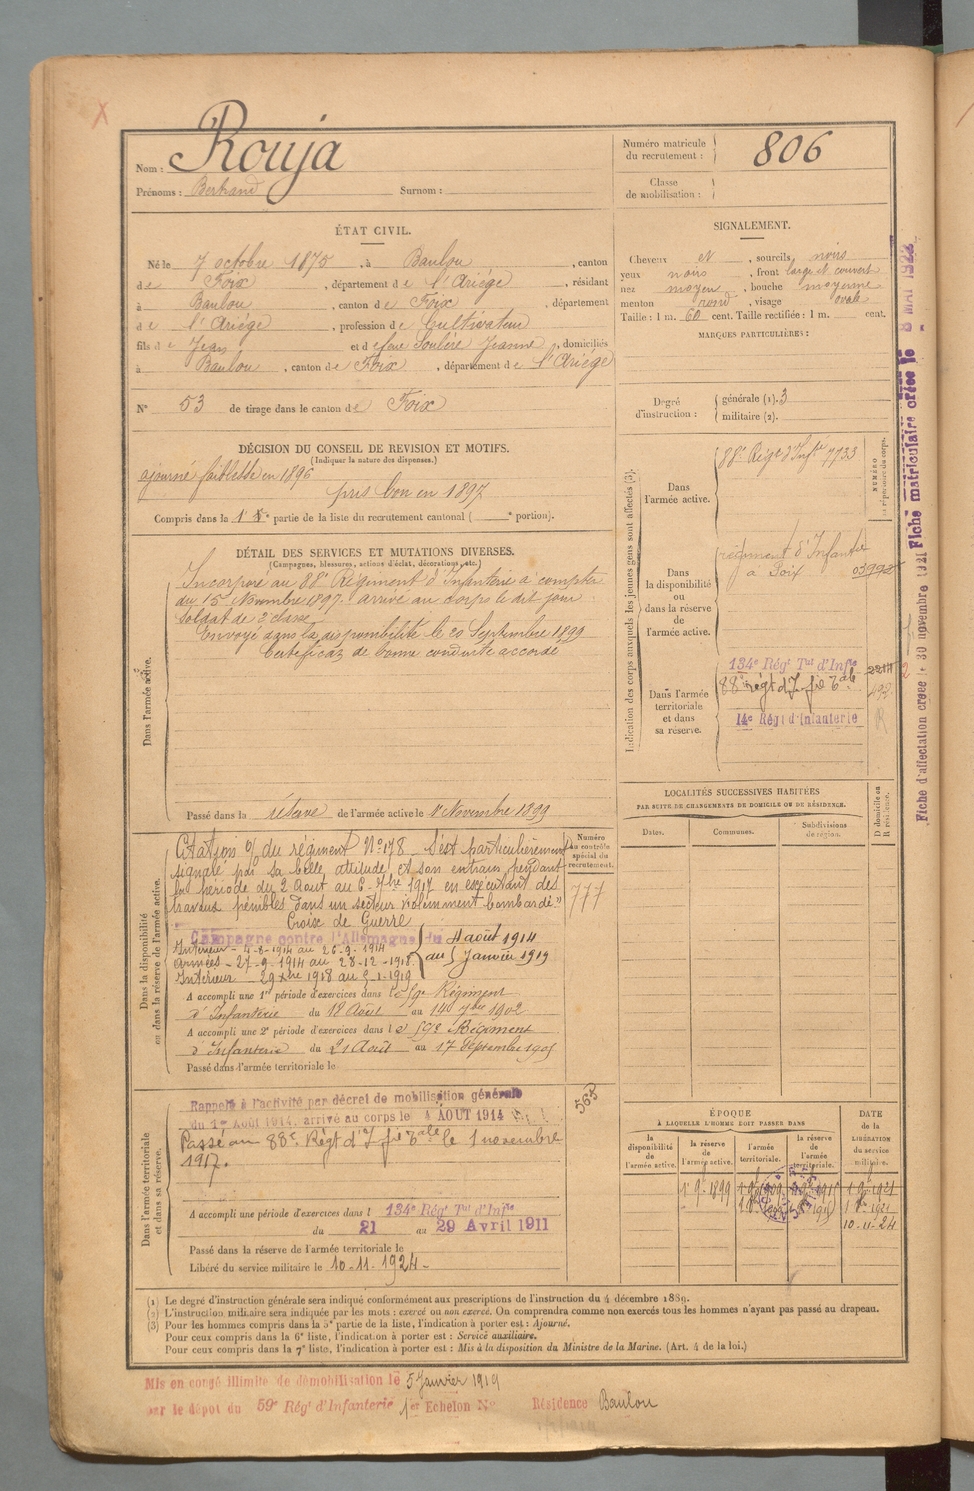 Rouja
Nom :
Prénoms : Bertrand Surnom :
Numéro matricule
du recrutement : 806
Classe
de mobilisation :
ÉTAT CIVIL.
Né le 7 octobre 1875, à Baulou, canton
de Foix, département de l'Ariége, résidant
à Baulou, canton de Foix, département
de l'Ariége, profession de Cultivateur
fils de Jean et de feue Soulère Jeanne, domiciliés
à Baulou, canton de Foix, département de l'Ariége
N° 53 de tirage dans le canton de Foix
SIGNALEMENT.
Cheveux et, sourcils noirs
yeux noirs, front large et couvert
nez moyen, bouche moyenne
menton rond, visage ovale
Taille : 1 m. 60 cent. Taille rectifiée : 1 m. cent.
MARQUES PARTICULIÈRES :
Degré
d'instruction :
générale (1). 3
militaire (2).
DÉCISION DU CONSEIL DE REVISION ET MOTIFS.
(Indiquer la nature des dispenses.)
ajourné faiblesse en 1896
pris bon en 1897
Compris dans la 1e partie de la liste du recrutement cantonal ( e portion).
DÉTAIL DES SERVICES ET MUTATIONS DIVERSES.
(Campagnes, blessures, actions d'éclat, décorations, etc.)
Dans l'armée active.
Incorporé au 88e Régiment d'Infanterie à compter
du 15 Novembre 1897. arrivé au corps le dit jour
soldat de 2e classe
Envoyé dans la disponibilité le 20 Septembre 1899
Certificat de bonne conduite accordé
Passé dans la réserve de l'armée active le 1er Novembre 1899
Indication des corps auxquels les jeunes gens sont affectés (3).
Dans
l'armée active.
88e Régt d'Infie 7733
NUMÉRO
au répertoire du corps.
Dans
la disponibilité
ou
dans la réserve
de
l'armée active.
régiment d'Infanterie
à Foix 03992
Dans l'armée
territoriale
et dans
sa réserve.
134e Régt Tal d'Infie
88e régt d'Infie Tale
14e Régt d'Infanterie
LOCALITÉS SUCCESSIVES HABITÉES
PAR SUITE DE CHANGEMENTS DE DOMICILE OU DE RÉSIDENCE.
Dates.
Communes.
Subdivisions
de région.
D domicile ou
R résidence.
Dans la disponibilité
ou dans la réserve de l'armée active.
Numéro
au contrôle
spécial du
recrutement.
777
Citation O/ du régiment N° 178 S'est particulièrement
signalé par sa belle attitude et son entrain pendant
la période du 2 Aout au 6 7bre 1917 en exécutant des
travaux pénibles dans un secteur violemment bombardé"
Croix de Guerre
Campagne contre l'Allemagne du 4 août 1914
au 5 Janvier 1919
Intérieur - 4-8-1914 au 26-9-1914
armées - 27-9-1914 au 28-12-1918
Intérieur 29 xbre 1918 au 5-1-1919
A accompli une 1re période d'exercices dans le 59e Régiment
d'Infanterie du 18 Août au 14 7bre 1902
A accompli une 2e période d'exercices dans le 59e Régiment
d'Infanterie du 21 Août au 17 Septembre 1905
Passé dans l'armée territoriale le
Dans l'armée territoriale
et dans sa réserve.
565
Rappelé à l'activité par décret de mobilisation générale
du 1er Août 1914, arrivé au corps le 4 AOUT 1914
Passé au 88e Régt d'Infie Tale le 1 novembre
1917.
A accompli une période d'exercices dans l 134e Régt Tal d'Infie
du 21 au 29 Avril 1911
Passé dans la réserve de l'armée territoriale le
Libéré du service militaire le 10-11-1924-
ÉPOQUE
À LAQUELLE L'HOMME DOIT PASSER DANS
la
disponibilité
de
l'armée active.
la réserve
de
l'armée active.
l'armée
territoriale.
la réserve
de
l'armée
territoriale.
DATE
de la
LIBÉRATION
du service
militaire.
1 9-1899
10-11-24
(1) Le degré d'instruction générale sera indiqué conformément aux prescriptions de l'instruction du 4 décembre 1889.
(2) L'instruction militaire sera indiquée par les mots : exercé ou non exercé. On comprendra comme non exercés tous les hommes n'ayant pas passé au drapeau.
(3) Pour les hommes compris dans la 5e partie de la liste, l'indication à porter est : Ajourné.
Pour ceux compris dans la 6e liste, l'indication à porter est : Service auxiliaire.
Pour ceux compris dans la 7e liste, l'indication à porter est : Mis à la disposition du Ministre de la Marine. (Art. 4 de la loi.)
Mis en congé illimité de démobilisation le 5 Janvier 1919
par le dépôt du 59e Régt d'Infanterie 1er Echelon N° Résidence Baulou
Fiche d'affectation créée le 30 novembre 1921
Fiche matriculaire créée le 8 MAI 1922